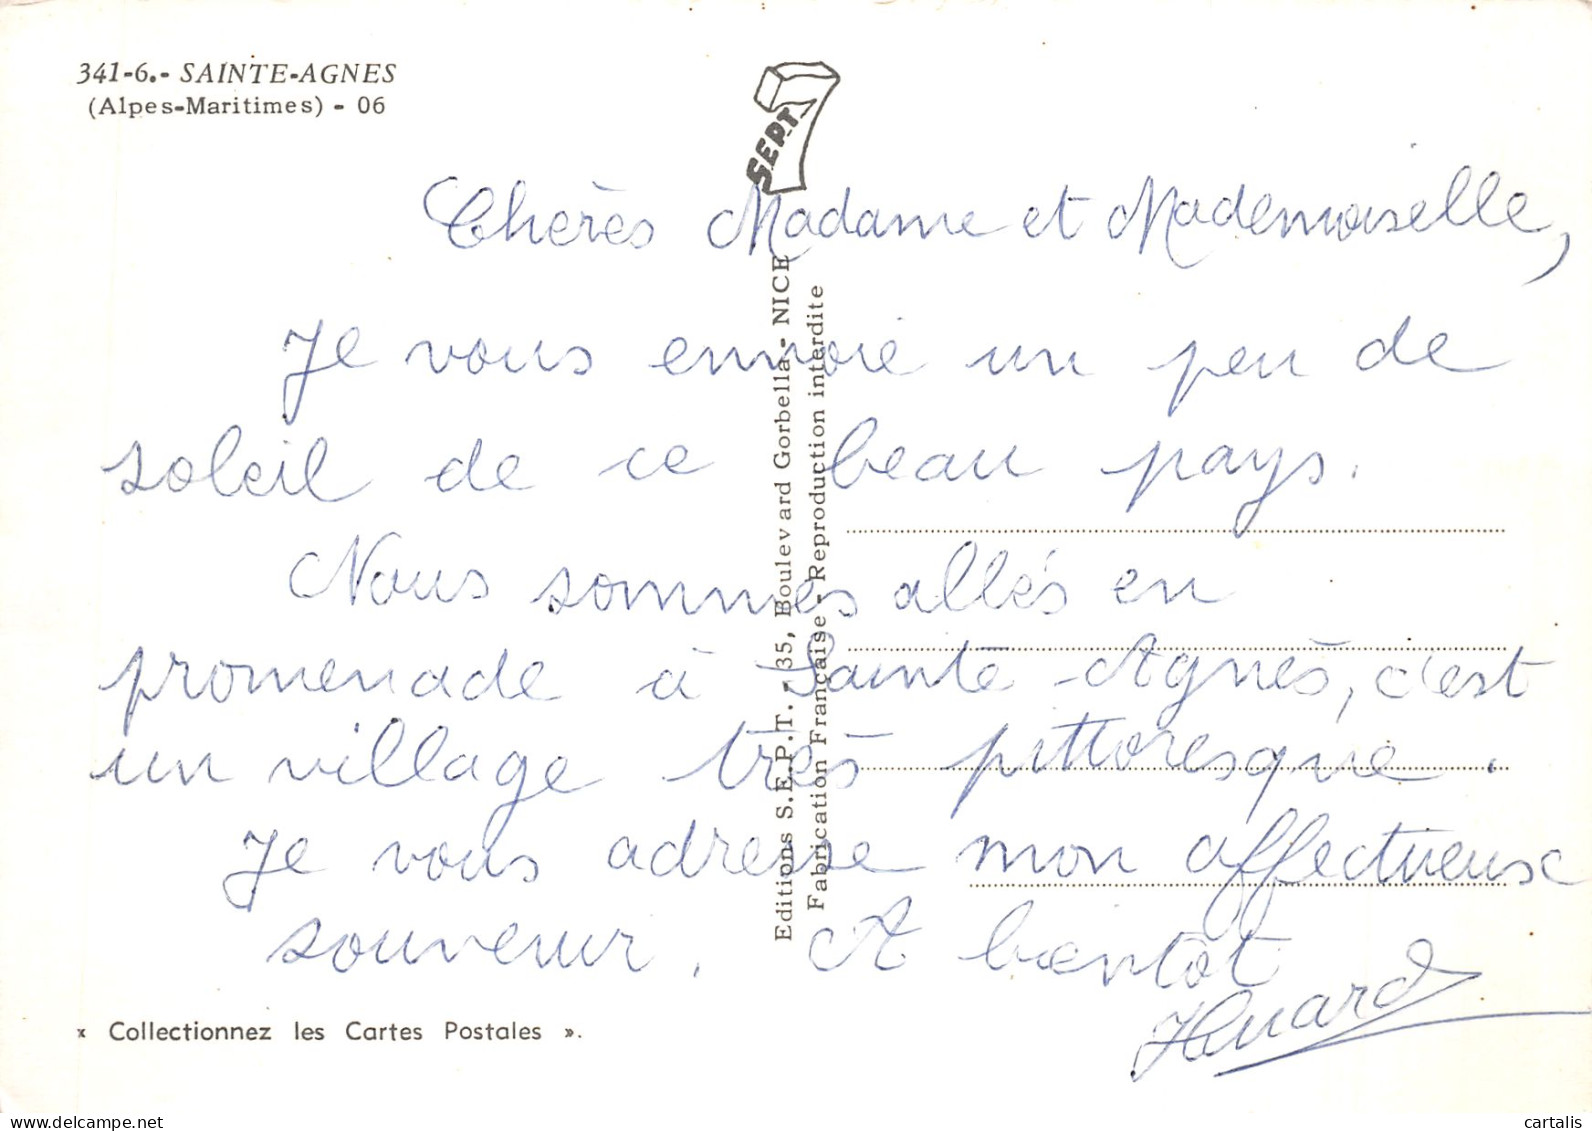 341-6.- SAINTE-AGNES
(Alpes-Maritimes) - 06
SEPT
7
Chères Madame et Mademoiselle,
Je vous envoie un peu de
soleil de ce beau pays.
Nous sommes allés en
promenade à Sainte-Agnès, c'est
un village très pittoresque.
Je vous adresse mon affectueux
souvenir. A bientot
Huard
Editions S.E.P.T. - 35, Boulevard Gorbella - NICE
Fabrication Française - Reproduction interdite
« Collectionnez les Cartes Postales ».
cartalis
delcampe.net